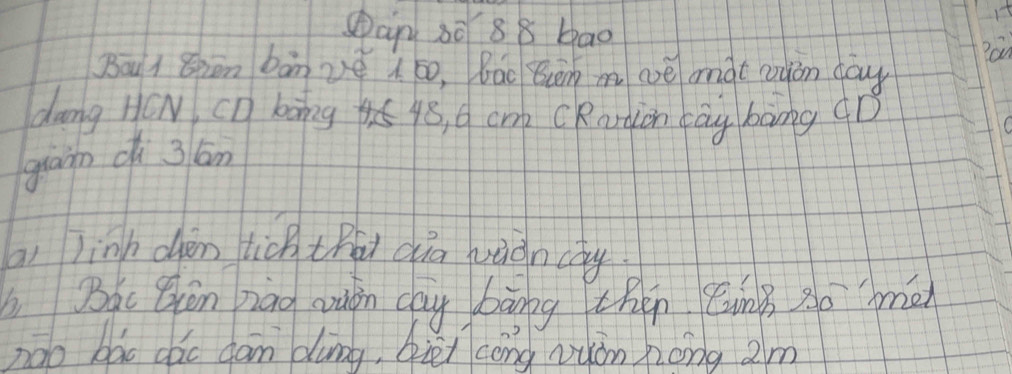 Đáp số 88 bao
Bài 1 Trên bản vẽ 1 00, Bác vẽ một vườn cây
dạng HCN, CD bằng 48,6 cm CR vườn cây bằng CD
giảm đi 3 lần
a) Tính diện tích thật của vườn cây.
b, Bác rào vườn cây bằng thép. Tính số mét
rào bác các cần dùng, biết cổng vườn rộng 2m